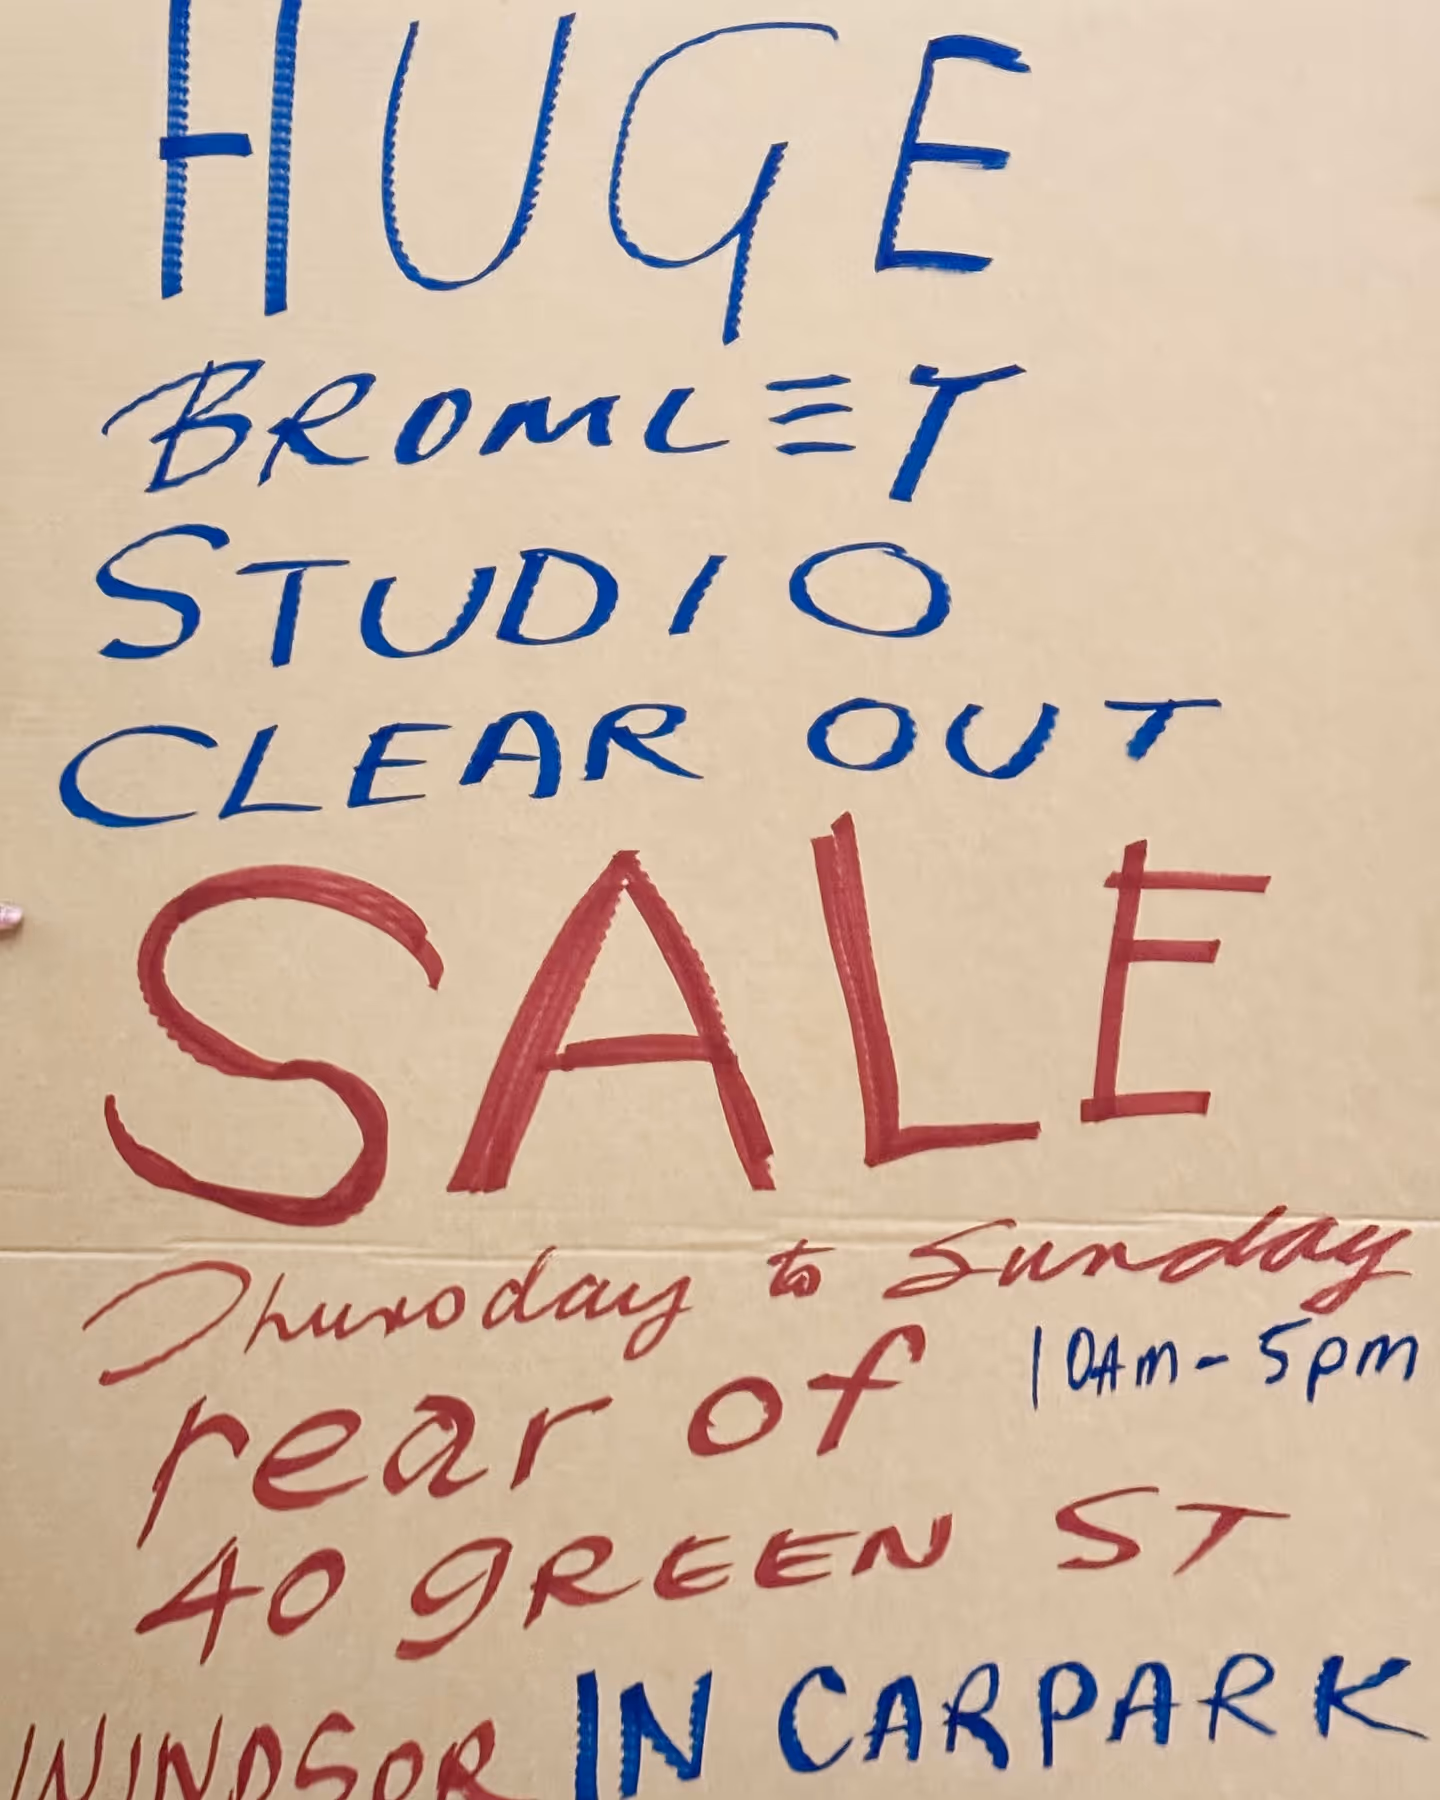 HUGE
BROMLEY
STUDIO
CLEAR OUT
SALE
Thursday to Sunday
10Am - 5pm
rear of
40 GREEN ST
WINDSOR IN CARPARK